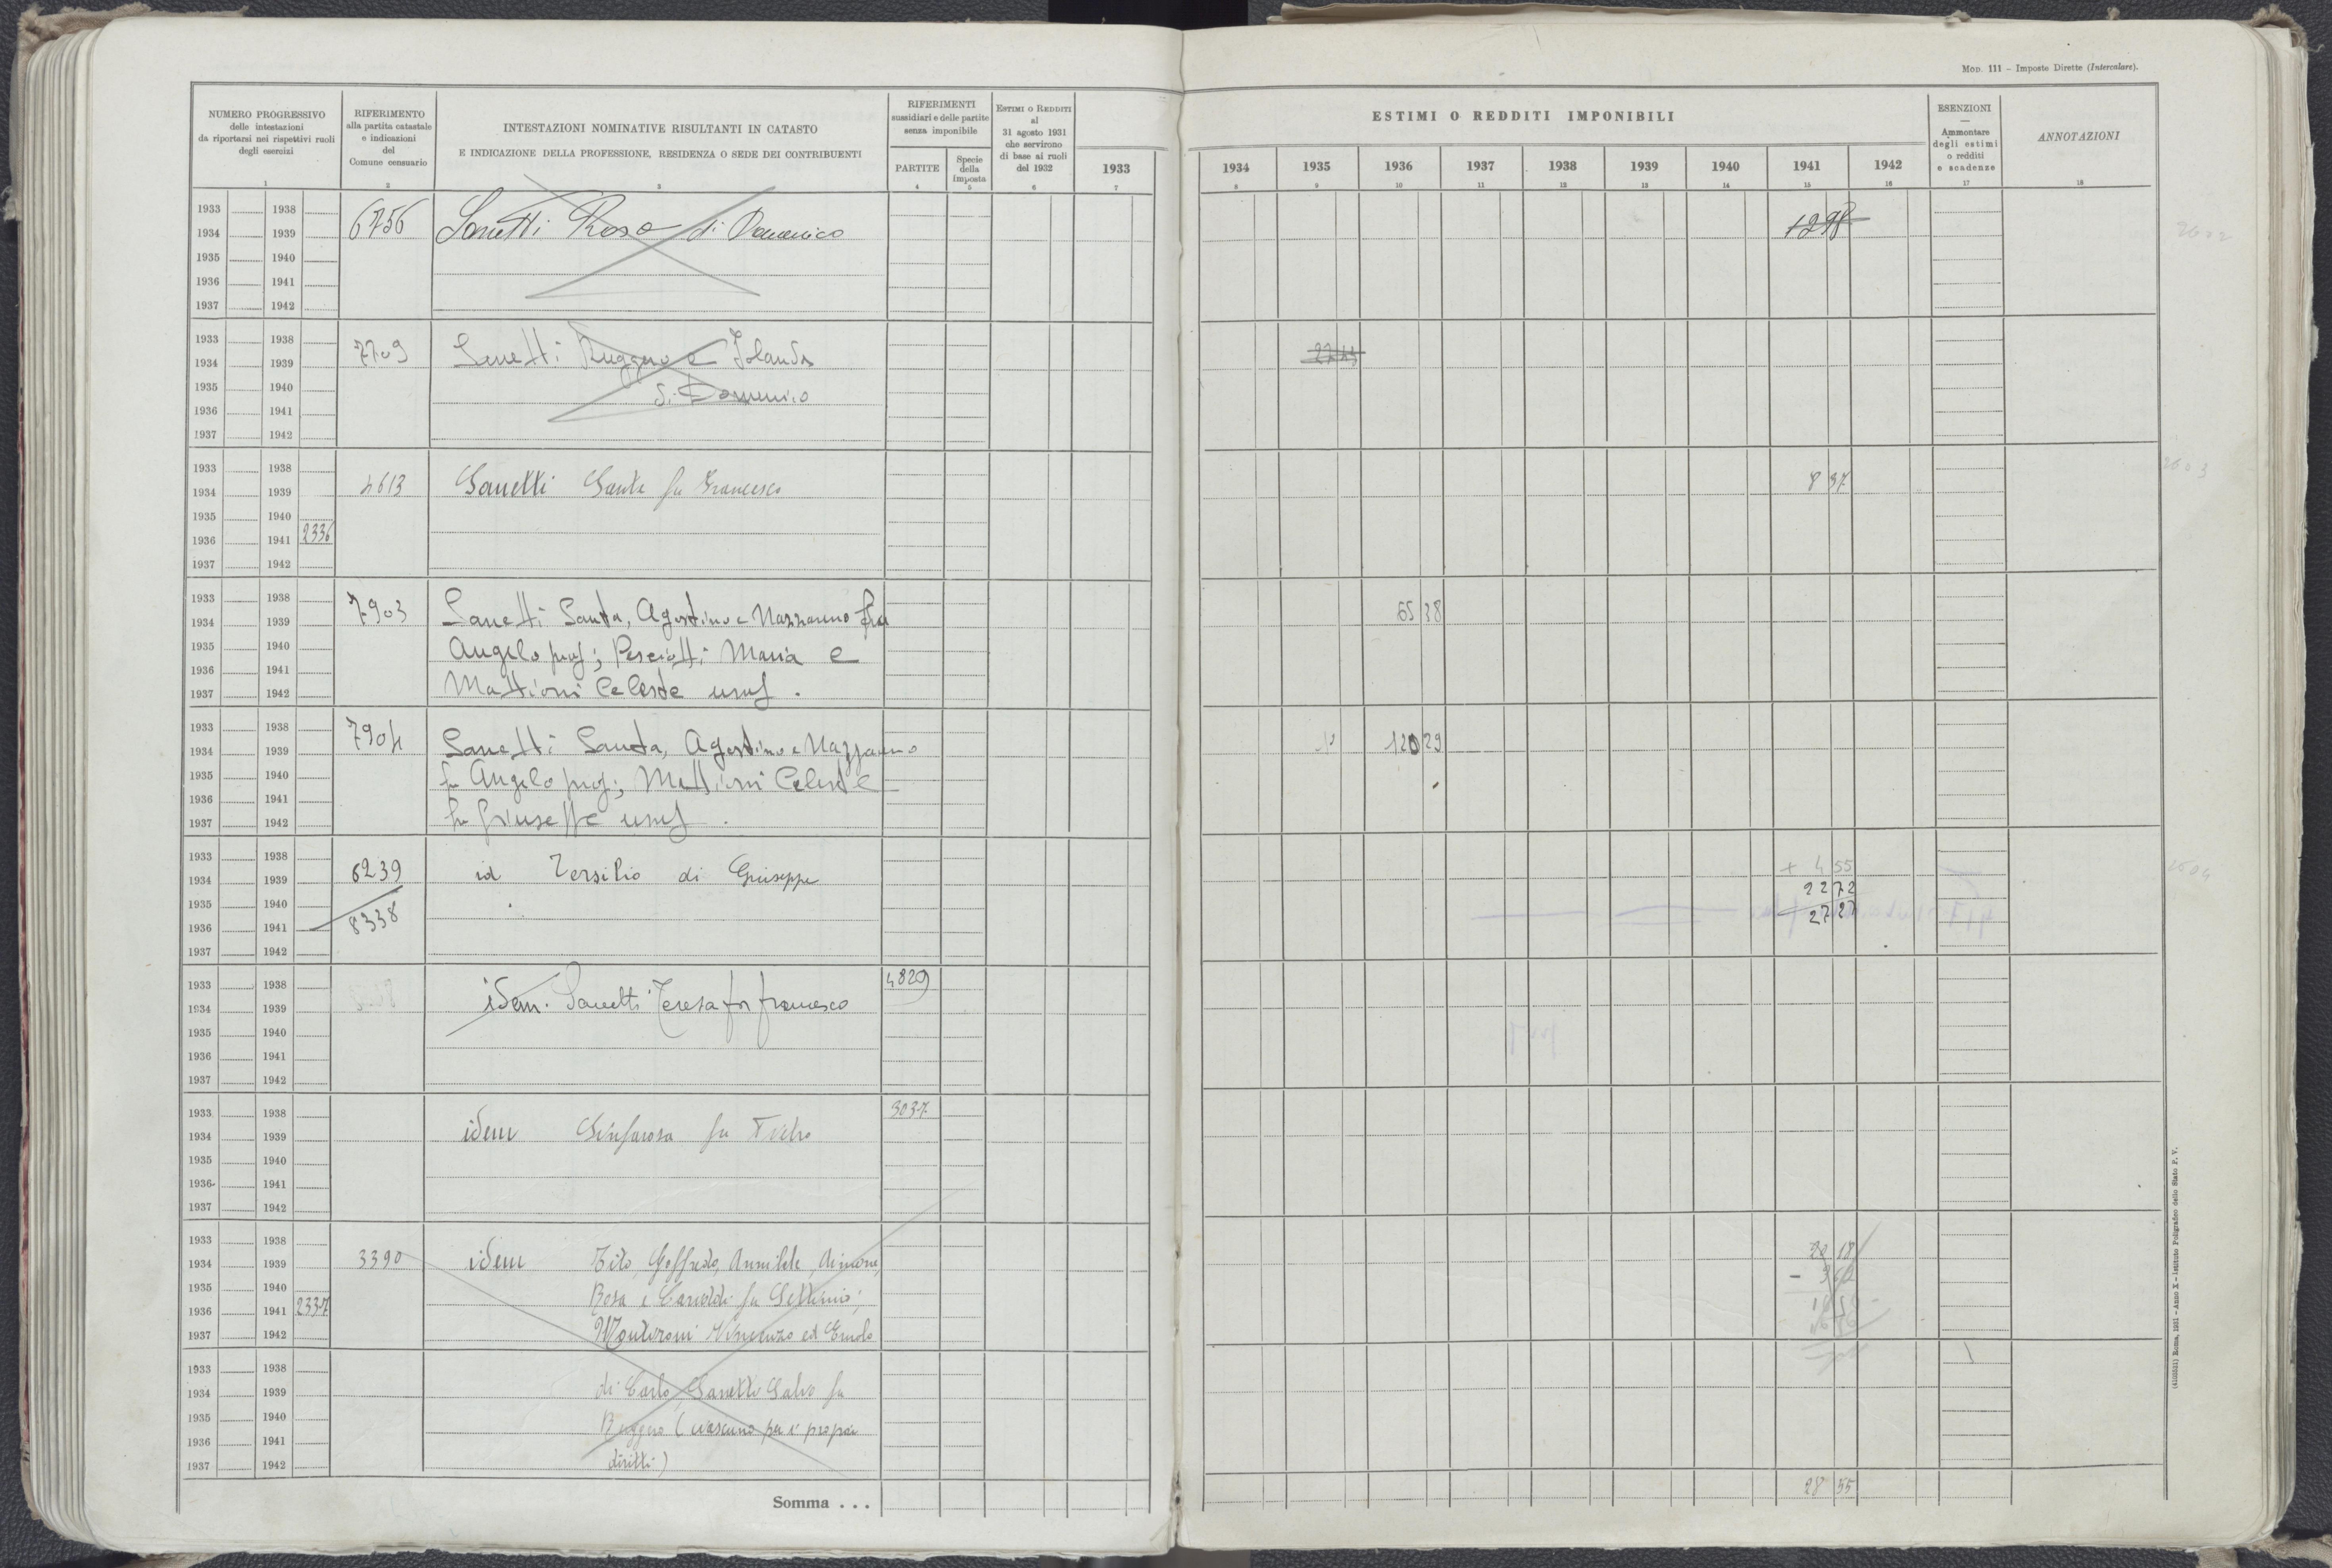 MOD. 111 - Imposte Dirette (Intercalare).
NUMERO PROGRESSIVO
delle intestazioni
da riportarsi nei rispettivi ruoli
degli esercizi
1
RIFERIMENTO
alla partita catastale
e indicazioni
del
Comune censuario
2
INTESTAZIONI NOMINATIVE RISULTANTI IN CATASTO
E INDICAZIONE DELLA PROFESSIONE, RESIDENZA O SEDE DEI CONTRIBUENTI
3
RIFERIMENTI
sussidiari e delle partite
senza imponibile
PARTITE
4
Specie
della
imposta
5
ESTIMI O REDDITI
al
31 agosto 1931
che servirono
di base ai ruoli
del 1932
6
1933
7
ESTIMI O REDDITI IMPONIBILI
1934 1935 1936 1937 1938 1939 1940 1941 1942
8 9 10 11 12 13 14 15 16
ESENZIONI
—
Ammontare
degli estimi
o redditi
e scadenze
17
ANNOTAZIONI
18
1933 1938
1934 1939 6756 Sanetti Rosa di Domenico 12 98
1935 1940
1936 1941
1937 1942
1933 1938
1934 1939 7709 Sanetti Ruggero e Jolanda
1935 1940 di Domenico
1936 1941
1937 1942
1933 1938
1934 1939 4613 Sanetti Sante fu Francesco 8 97
1935 1940
1936 1941 2336
1937 1942
1933 1938
1934 1939 7903 Sanetti Santa, Agostino e Nazzareno fu 65 38
1935 1940 Angelo prop; Pesciotti Maria e
1936 1941
1937 1942 Mattioni Celeste usuf.
1933 1938
1934 1939 7904 Sanetti Santa, Agostino e Nazzareno 120 29
1935 1940 fu Angelo prop; Mattioni Celeste
1936 1941
1937 1942 fu Giuseppe usuf.
1933 1938 + 4 55
1934 1939 6239 id Tersilio di Giuseppe 22 72
1935 1940 27 27
1936 1941 8338
1937 1942
1933 1938 4829
1934 1939 idem. Sanetti Teresa fu Francesco
1935 1940
1936 1941
1937 1942
1933 1938 3037
1934 1939 idem Sinforosa fu Pietro
1935 1940
1936 1941
1937 1942
1933 1938
1934 1939 3390 idem Tito, Goffredo, Annibale, Aimone, 20 18
1935 1940 Rosa e fu Settimio;
1936 1941 2337
1937 1942 Vincenzo ed
1933 1938
1934 1939 di Carlo, Sanetti Salvo fu
1935 1940 Ruggero (ciascuno per i propri
1936 1941
1937 1942 diritti)
Somma . . . 28 55
2603
2604
(4103531) Roma, 1931 - Anno X - Istituto Poligrafico dello Stato P. V.